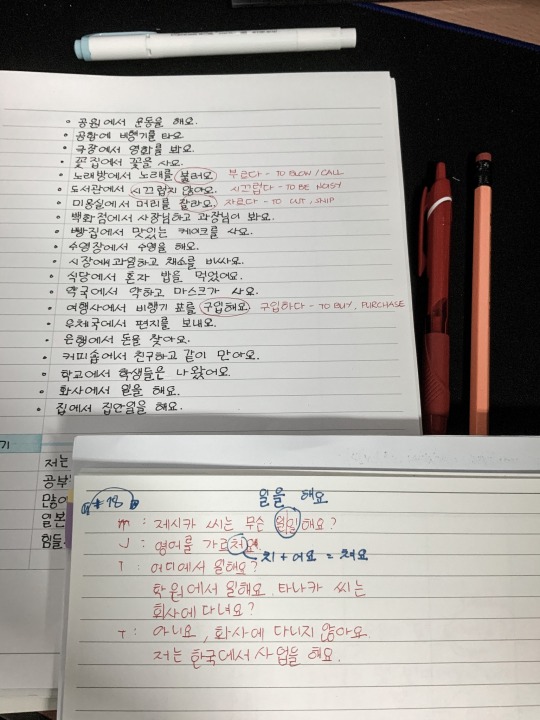 • 공원에서 운동을 해요.
• 공항에 비행기를 타요.
• 극장에서 영화를 봐요.
• 꽃집에서 꽃을 사요.
• 노래방에서 노래를 불러요 부르다 - TO BLOW / CALL
• 도서관에서 시끄럽지 않아요. 시끄럽다 - TO BE NOISY
• 미용실에서 머리를 잘라요. 자르다 - TO CUT, SNIP
• 백화점에서 사장님하고 과장님이 봐요.
• 빵집에서 맛있는 케이크를 사요.
• 수영장에서 수영을 해요.
• 시장에서 과일하고 채소를 비싸요.
• 식당에서 혼자 밥을 먹었어요.
• 약국에서 약하고 마스크가 사요.
• 여행사에서 비행기 표를 구입해요 구입하다 - TO BUY, PURCHASE
• 우체국에서 편지를 보내요.
• 은행에서 돈을 찾아요.
• 커피숍에서 친구하고 같이 만아요.
• 학교에서 학생들은 나왔어요.
• 화사에서 일을 해요.
• 집에서 집안일을 해요.
기
저는
공부
많이
일본
힘들
#18
일을 해요
m : 제시카 씨는 무슨 일일해요?
J : 영어를 가르쳐요.
치 + 어요 = 쳐요
T : 어디에서 일해요?
학원에서 일해요. 타나카 씨는
회사에 다녀요?
T : 아니요, 화사에 다니지 않아요.
저는 한국에서 사업을 해요.